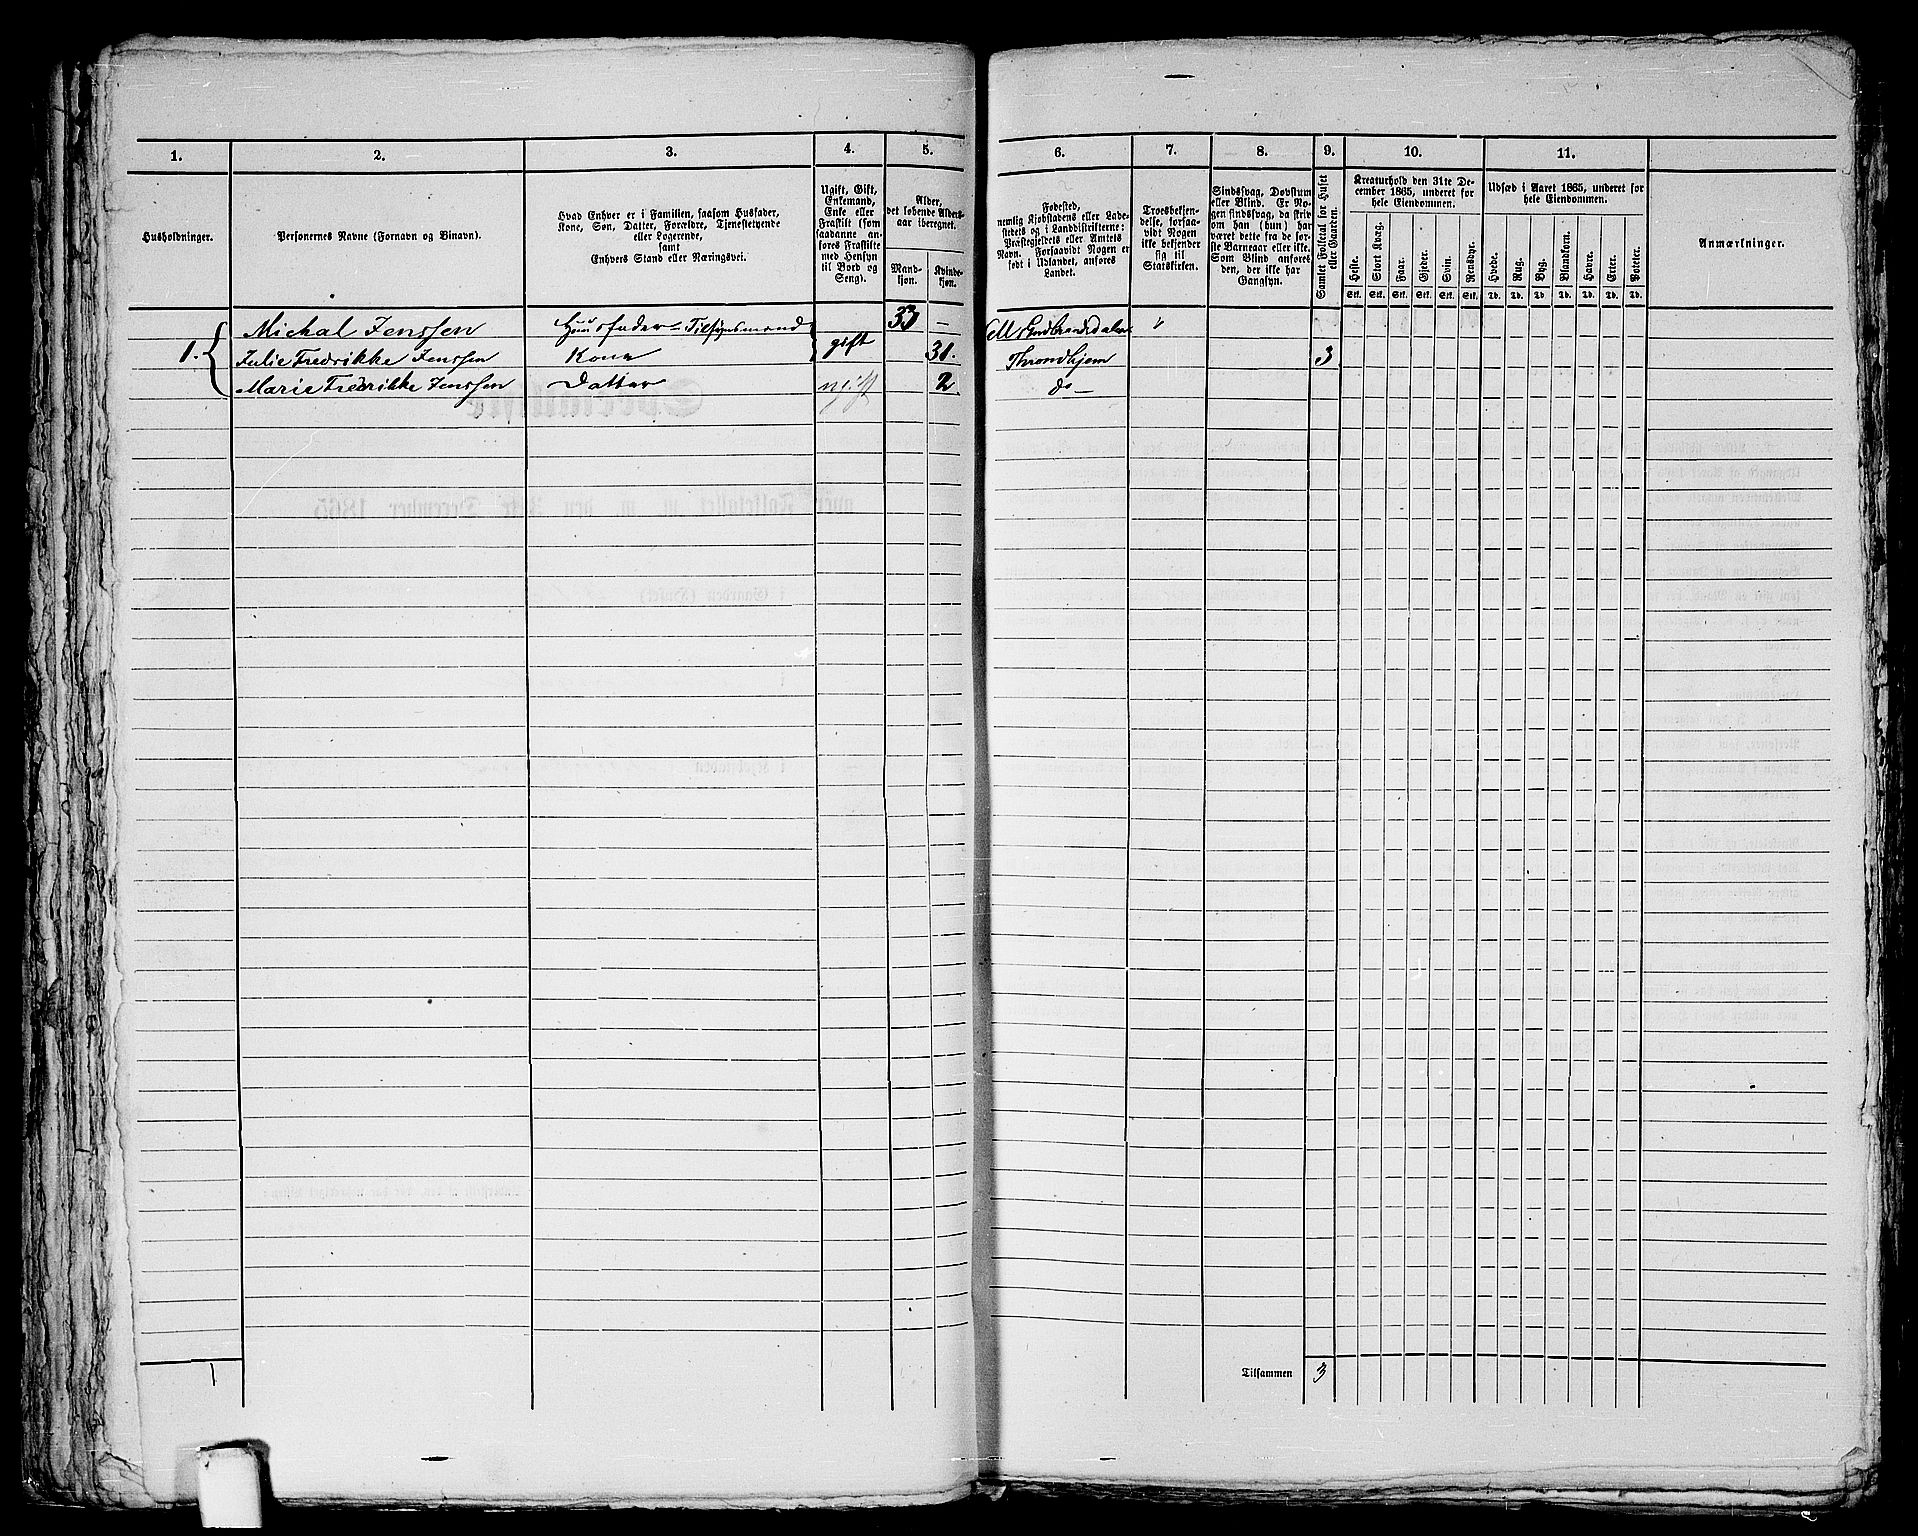 1. 2. 3. 4. 5. 6. 7. 8. 9. 10. 11.
Husholdninger.
Personernes Navne (Fornavn og Binavn).
Hvad Enhver er i Familien, saasom Husfader,
Kone, Søn, Datter, Forældre, Tjenestetyende
eller Logerende,
samt
Enhvers Stand eller Næringsvei.
Ugift, Gift,
Enkemand,
Enke eller
Fraskilt (som
saadanne an-
føres Fraskilte
med Hensyn
til Bord og
Seng).
Alder,
det løbende Alders-
aar iberegnet.
Mand-
kjøn.
Kvinde-
kjøn.
Fødested,
nemlig Kjøbstadens eller Lade-
stedets og i Landdistrikterne:
Præstegjeldets eller Amtets
Navn. Forsaavidt Nogen er
født i Udlandet, anføres
Landet.
Troesbekjen-
delse, forsaa-
vidt Nogen
ikke bekjender
sig til
Statskirken.
Sindssvag, Døvstum
eller Blind. Er No-
gen sindssvag, da skriv
om han (hun) har
været dette fra de før-
ste Barneaar eller ikke.
Som Blind anføres
den, der ikke har
Gangsyn.
Samlet Folketal for Huset
eller Gaarden.
Kreaturhold den 31te De-
cember 1865, underet for
hele Eiendommen.
Heste. Stort Kvæg. Faar. Gjeder. Svin. Rensdyr.
Stk. Stk. Stk. Stk. Stk. Stk.
Udsæd i Aaret 1865, underet for
hele Eiendommen.
Hvede. Rug. Byg. Blandkorn. Havre. Erter. Poteter.
Td. Td. Td. Td. Td. Td. Td.
Anmærkninger.
Michal Jenssen Huusfader Tilsynsmand 33 —
1. Julie Fredrikke Jenssen Kone gift 31. Throndhjem 3
Marie Fredrikke Jenssen Datter ugift 2 do —
1
Tilsammen 3